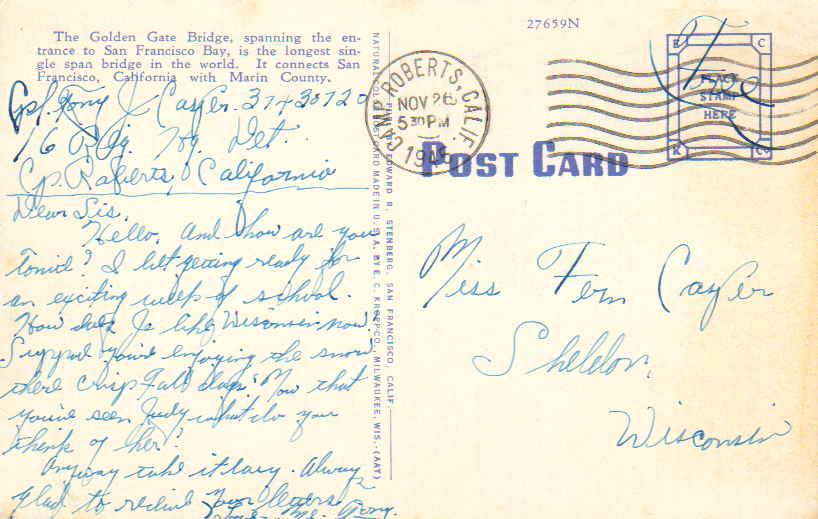 The Golden Gate Bridge, spanning the en-
trance to San Francisco Bay, is the longest sin-
gle span bridge in the world. It connects San
Francisco, California with Marin County.
Cpl. Tony J. Casper 37430720
76 Bldg.
Cp. Roberts, California
Dear Sis,
Hello. And how are you
Tonite? I bet getting ready for
an exciting week of school.
How does Jo like Wisconsin now.
Suppose you're enjoying the snow
there Crisp Fall days. Now that
you've seen Judy what do you
think of her?
Anyway take it easy. Always
glad to recieve your letters
Me. Tony.
NATURAL COLOR POST CARD MADE IN U.S.A. BY E. C. KROPP CO., MILWAUKEE, WIS. (AAT)
EDWARD R. STENBERG, SAN FRANCISCO, CALIF.
27659N
CAMP ROBERTS, CALIF.
NOV 26
5 30 PM
1945
POST CARD
Free
E C
PLACE
STAMP
HERE
K Co
Miss Fern Casper
Sheldon,
Wisconsin